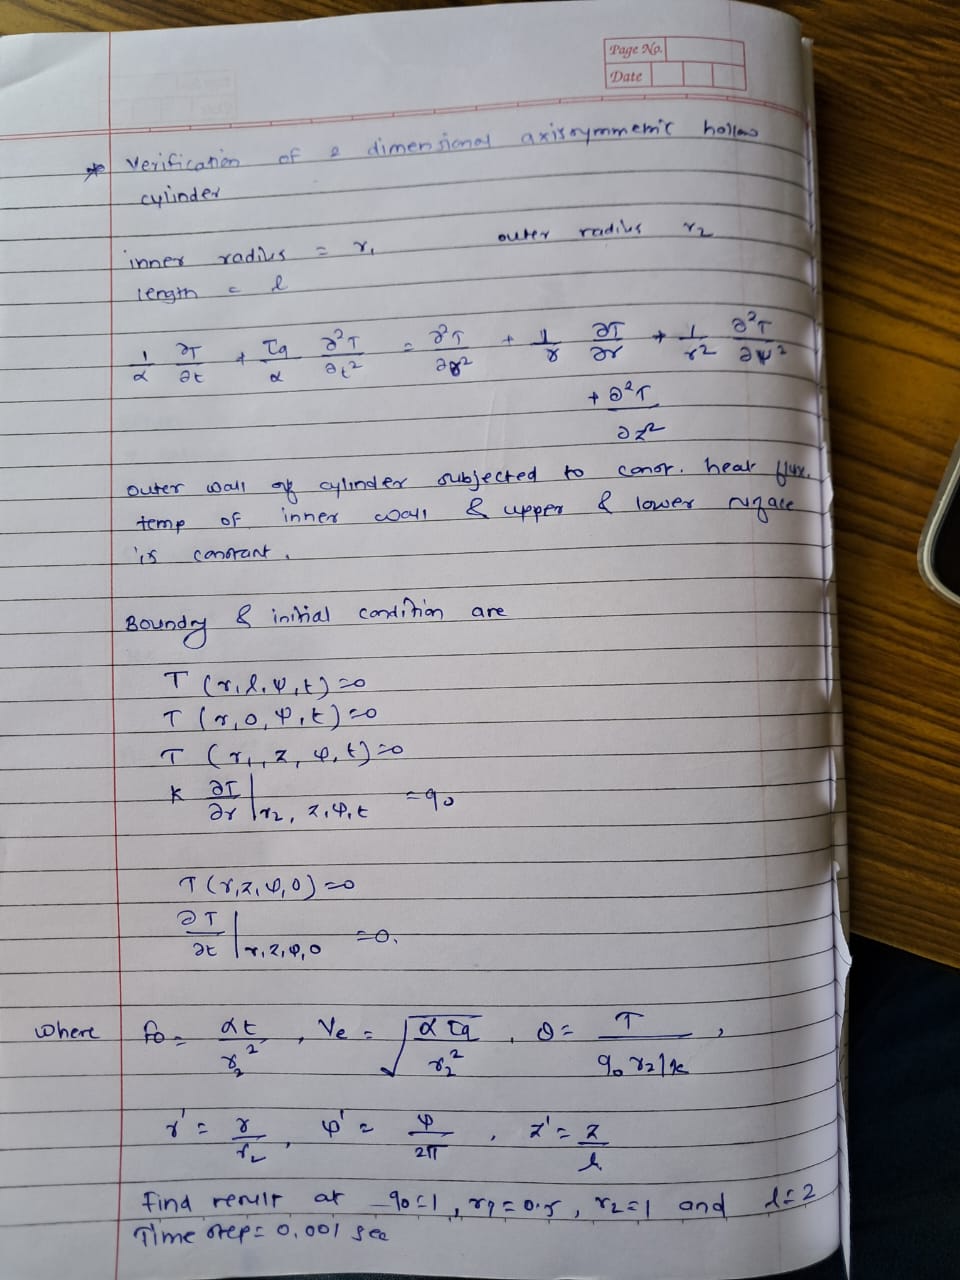 Page No.
Date
* Verification of 2 dimensional axisymmemic hollow
cylinder
inner radius = r₁ outer radius r₂
length = l
1/α ∂T/∂t + τq/α ∂²T/∂t² = ∂²T/∂r² + 1/r ∂T/∂r + 1/r² ∂²T/∂ψ²
+ ∂²T/∂z²
outer wall of cylinder subjected to const. heat flux.
temp of inner wall & upper & lower surface
is constant.
Boundry & initial condition are
T (r, l, φ, t) = 0
T (r, 0, φ, t) = 0
T (r₁, z, φ, t) = 0
K ∂T/∂r |r₂, z, φ, t = q₀
T (r, z, φ, 0) = 0
∂T/∂t |r, z, φ, 0 = 0.
where fo = αt/r₂² , Ve = √(α τq/r₂²) , θ = T/(q₀ r₂/k) ,
r' = r/r₂ , φ' = φ/2π , z' = z/l.
find result at q₀=1, r₁=0.5, r₂=1 and l=2
Time step = 0.001 sec